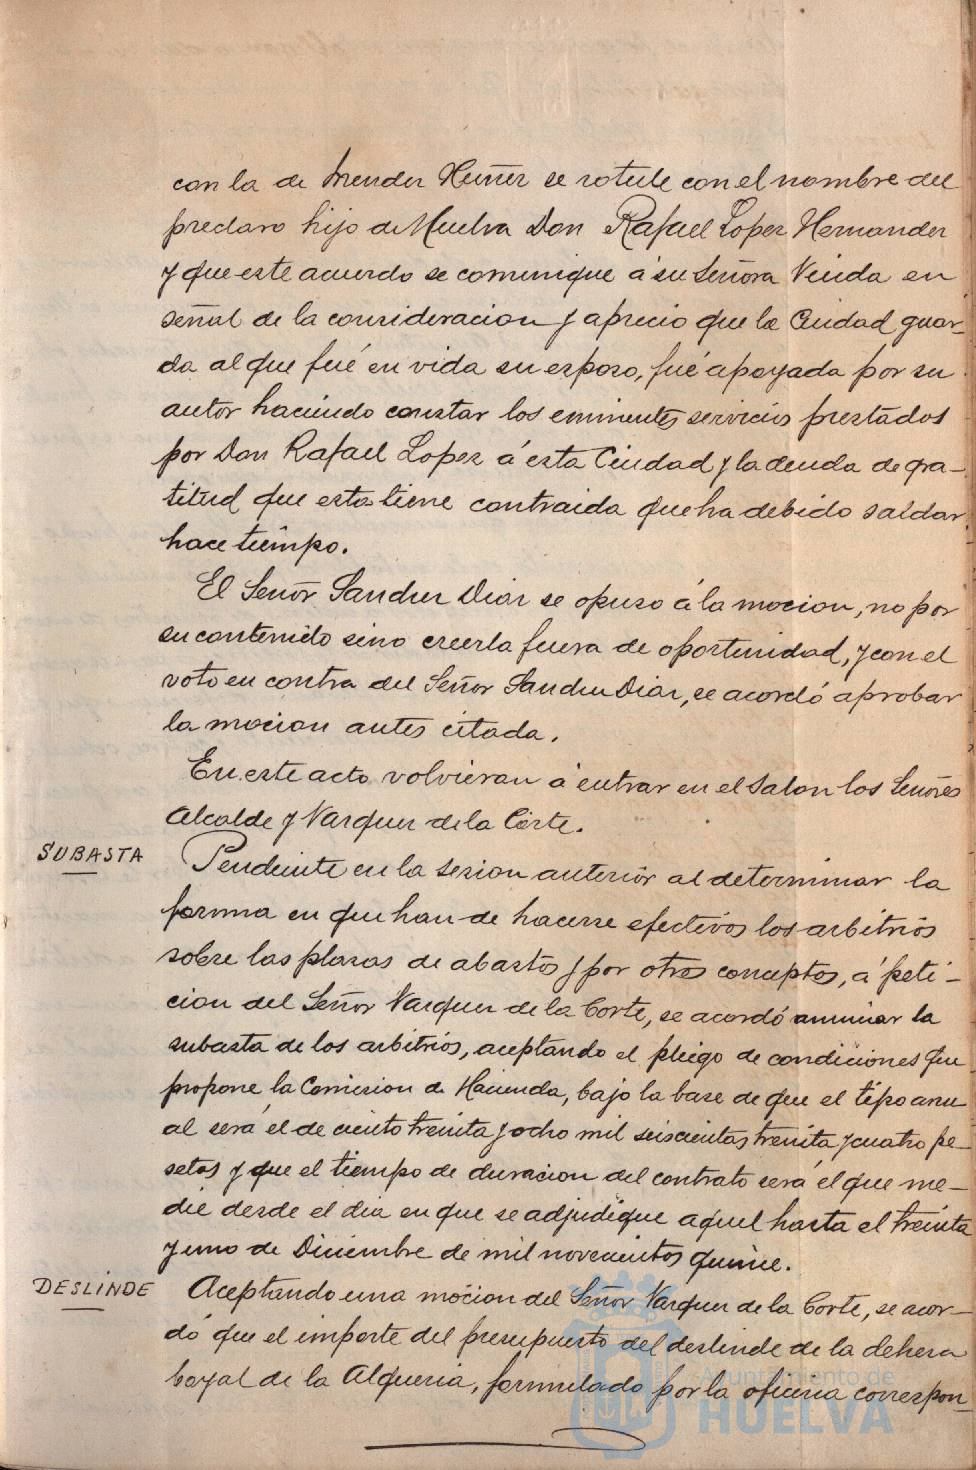 con la de Mendez Nuñez se rotule con el nombre del
preclaro hijo de Huelva Don Rafael Lopez Hernandez
y que este acuerdo se comunique á su Señora Viuda en
señal de la consideracion y aprecio que la Ciudad guar-
da al que fué en vida su esposo, fué apoyada por su
autor haciendo constar los eminentes servicios prestados
por Don Rafael Lopez á esta Ciudad y la deuda de gra-
titud que esta tiene contraida que ha debido saldar
hace tiempo.
El Señor Sanchez Diaz se opuso á la mocion, no por
su contenido sino creerla fuera de oportunidad, y con el
voto en contra del Señor Sanchez Diaz, se acordó aprobar
la mocion antes citada.
En este acto volvieron á entrar en el Salon los Señores
Alcalde y Vazquez de la Corte.
SUBASTA
Pendiente en la sesion anterior al determinar la
forma en que han de hacerse efectivos los arbitrios
sobre las plazas de abastos y por otros conceptos, á peti-
cion del Señor Vazquez de la Corte, se acordó anunciar la
subasta de los arbitrios, aceptando el pliego de condiciones que
propone la Comision de Hacienda, bajo la base de que el tipo anu
al será el de ciento treinta y ocho mil seiscientas treinta y cuatro pe-
setas y que el tiempo de duracion del contrato será el que me-
die desde el dia en que se adjudique aquel hasta el treinta
y uno de Diciembre de mil novecientos quince.
DESLINDE
Aceptando una mocion del Señor Vazquez de la Corte, se acor-
dó que el importe del presupuesto del deslinde de la dehesa
boyal de la Alqueria, formulado por la oficina correspon-
Ayuntamiento de
HUELVA